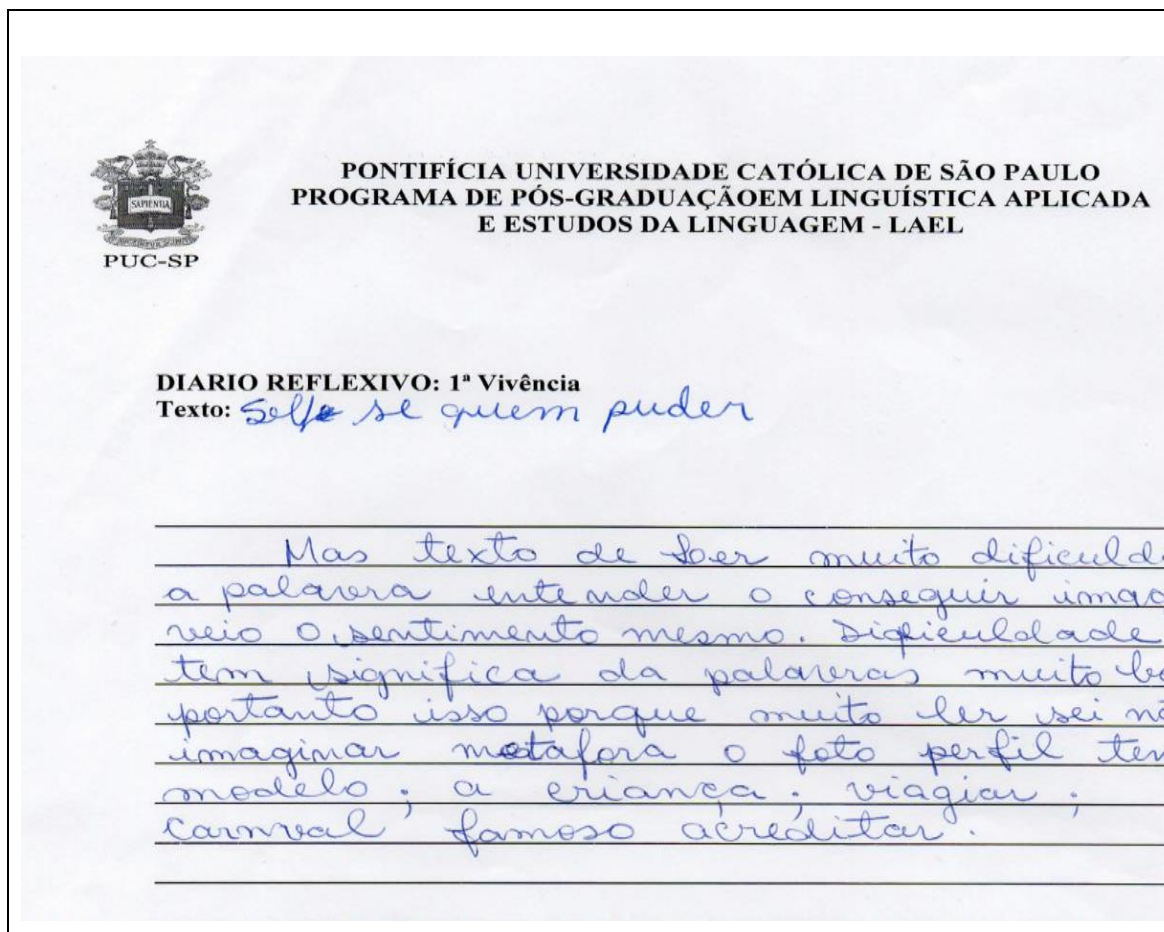 SAPIENTIA
PUC-SP
PONTIFÍCIA UNIVERSIDADE CATÓLICA DE SÃO PAULO
PROGRAMA DE PÓS-GRADUAÇÃOEM LINGUÍSTICA APLICADA
E ESTUDOS DA LINGUAGEM - LAEL
DIARIO REFLEXIVO: 1ª Vivência
Texto: Selfe se quem puder
Mas texto de ler muito dificulda
a palavra entender o conseguir imag
veio o sentimento mesmo. Dificuldade
tem significa da palavras muito ba
portanto isso porque muito ler sei nã
imaginar metafora o foto perfil tem
modelo; a criança; viagiar;
carnval famoso acreditar.